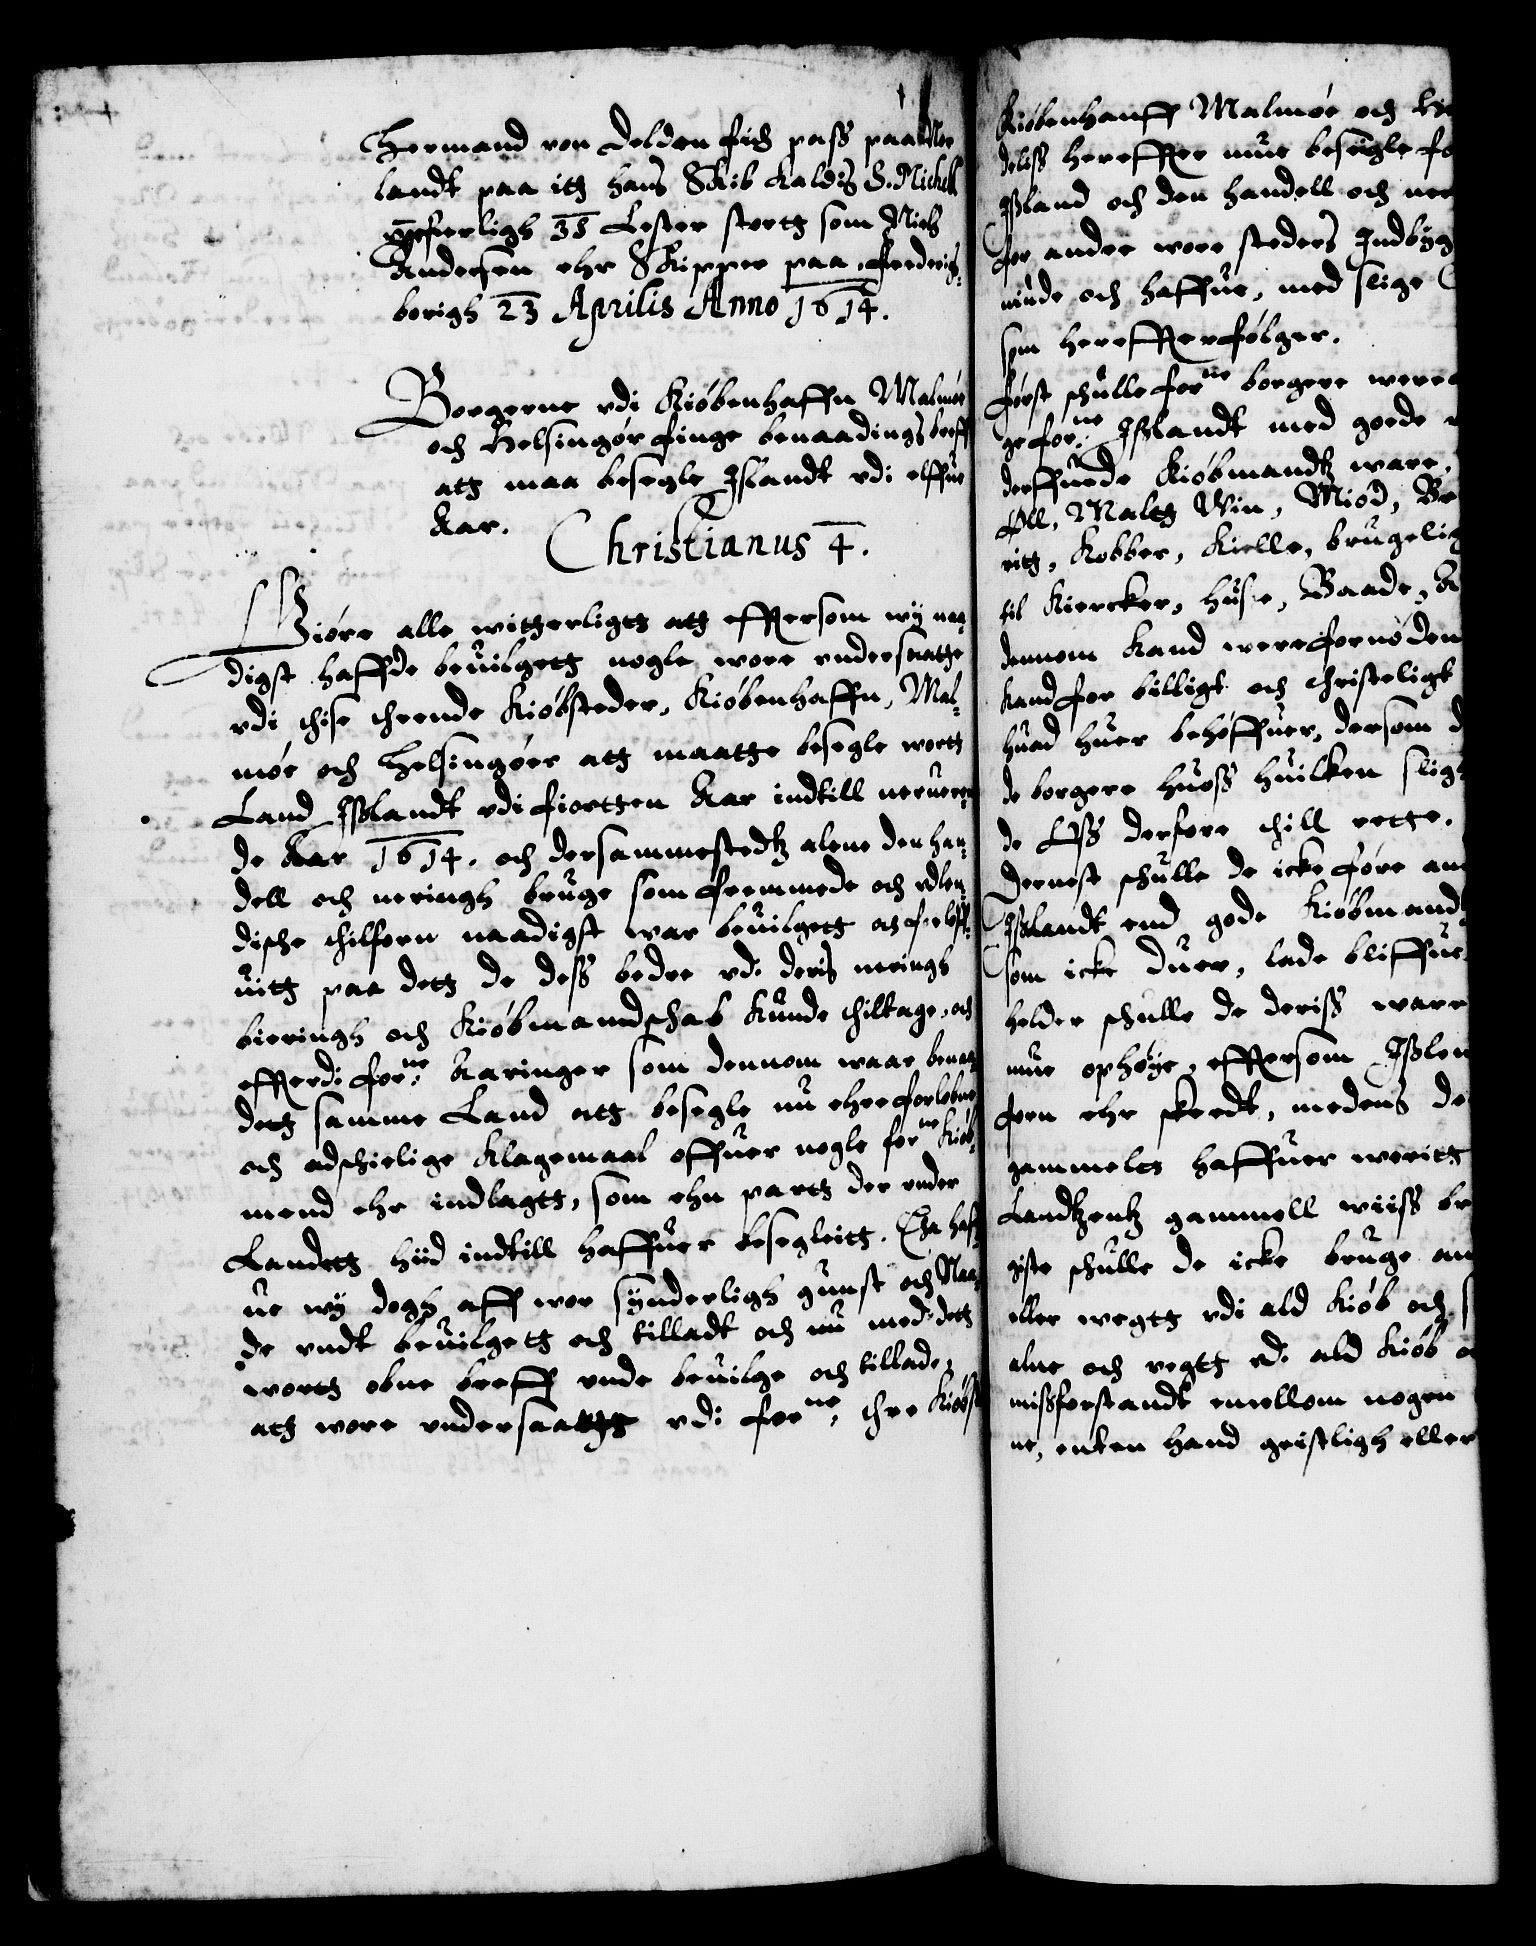 Hermand von Delden fich pass paa Nor
landt paa itt hans Skib kaldis S. Michell
ongeferligh 38 Lester stortt som Niels
Andersen ehr Skipper paa, frederigs-
borigh 23 Aprilis Anno 1614.
Borgerne vdi Kiøbenhaffn Malmøe
och Helsingør finge benaadings breff
att maa besegle Island vdi elffue
Aar.
Christianus 4.
Giøre alle witterligtt att effttersom wy naa-
digst haffde beuilgett nogle wore vndersaatte
vdi thise thrende Kiøbsteder, Kiøbenhaffn, Mal-
møe och Helsingøer att maatte besegle wortt
Land Issland vdi fiortten Aar indtill nerueren
de Aar 1614. och dersammestedtz alene den han-
dell och neringh bruge som fremmede och vdlen-
dische thilforn naadigst war beuilgett och forløff-
uitt paa dett de dess bedre vdi deris neringh
bieringh och Kiøbmandschab kunde thiltage, och
efftterdi forne Aaringer som dennom waar benaa-
dett samme Land att besegle nu ehre forløbne
och adschielige Klagemaal offuer nogle forne Kiøb-
mend ehr indlagtt, som ehn partt der vnder
Landett hiid indtill haffuer besegleitt. Tha haff-
ue wy dogh aff wor synderligh gunst och Naa-
de vndt beuilgett och tilladt och nu med dett
wortt obne breff vnde beuilge och tillade,
att wore vndersaatte vdi forne, thre Kiøbst
Kiøbenhauff Malmøe och He
deliss hereffter mue besegle fo
Issland och den handell och ner
for andre wore steders Indbyg
niude och haffue, med slige
som hereffterfølger.
Først schulle forne borgere were
ge forne: Isslandt med goede
derffuede Kiøbmandtz ware,
Øll, Maltt Win, Miød, Br
ritt, Kobber, Kielle, brugelig
til Kiercker, Huse, Baade, A
dennom kand were fornøden
kand for billigt och christeligt
huad huer behøffuer, dersom d
de borgere huoss huilken sligt
de Oss derfore thill rette.
Dernest schulle de icke føre and
Isslandt end gode Kiøbmand
som icke duer, lade bliffue
helder schulle de deriss ware
mue ophøye, effttersom Isslen
forn ehr skeedt, medens de
gammeltt haffuer weritt
Landtzentz gammell wiiss br
giste schulle de icke bruge an
eller wegtt vdi ald Kiøb och s
alne och vegtt vdi ald Kiøb o
missforstandt emellom nogen
ne, enten hand geistligh eller